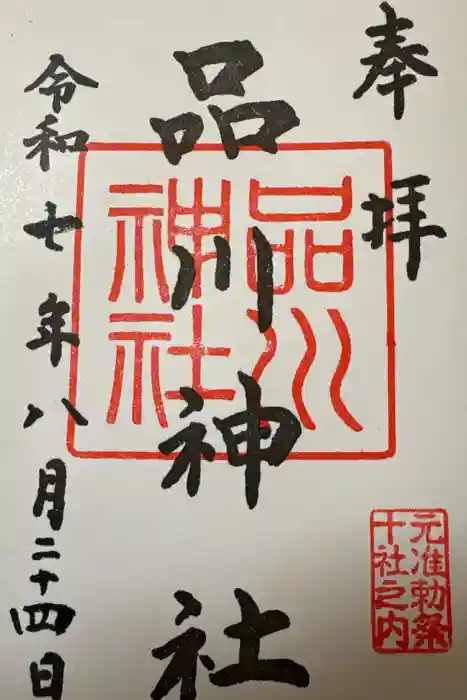 奉拝
品川神社
品川
神社
元准勅祭
十社之内
令和七年八月二十四日